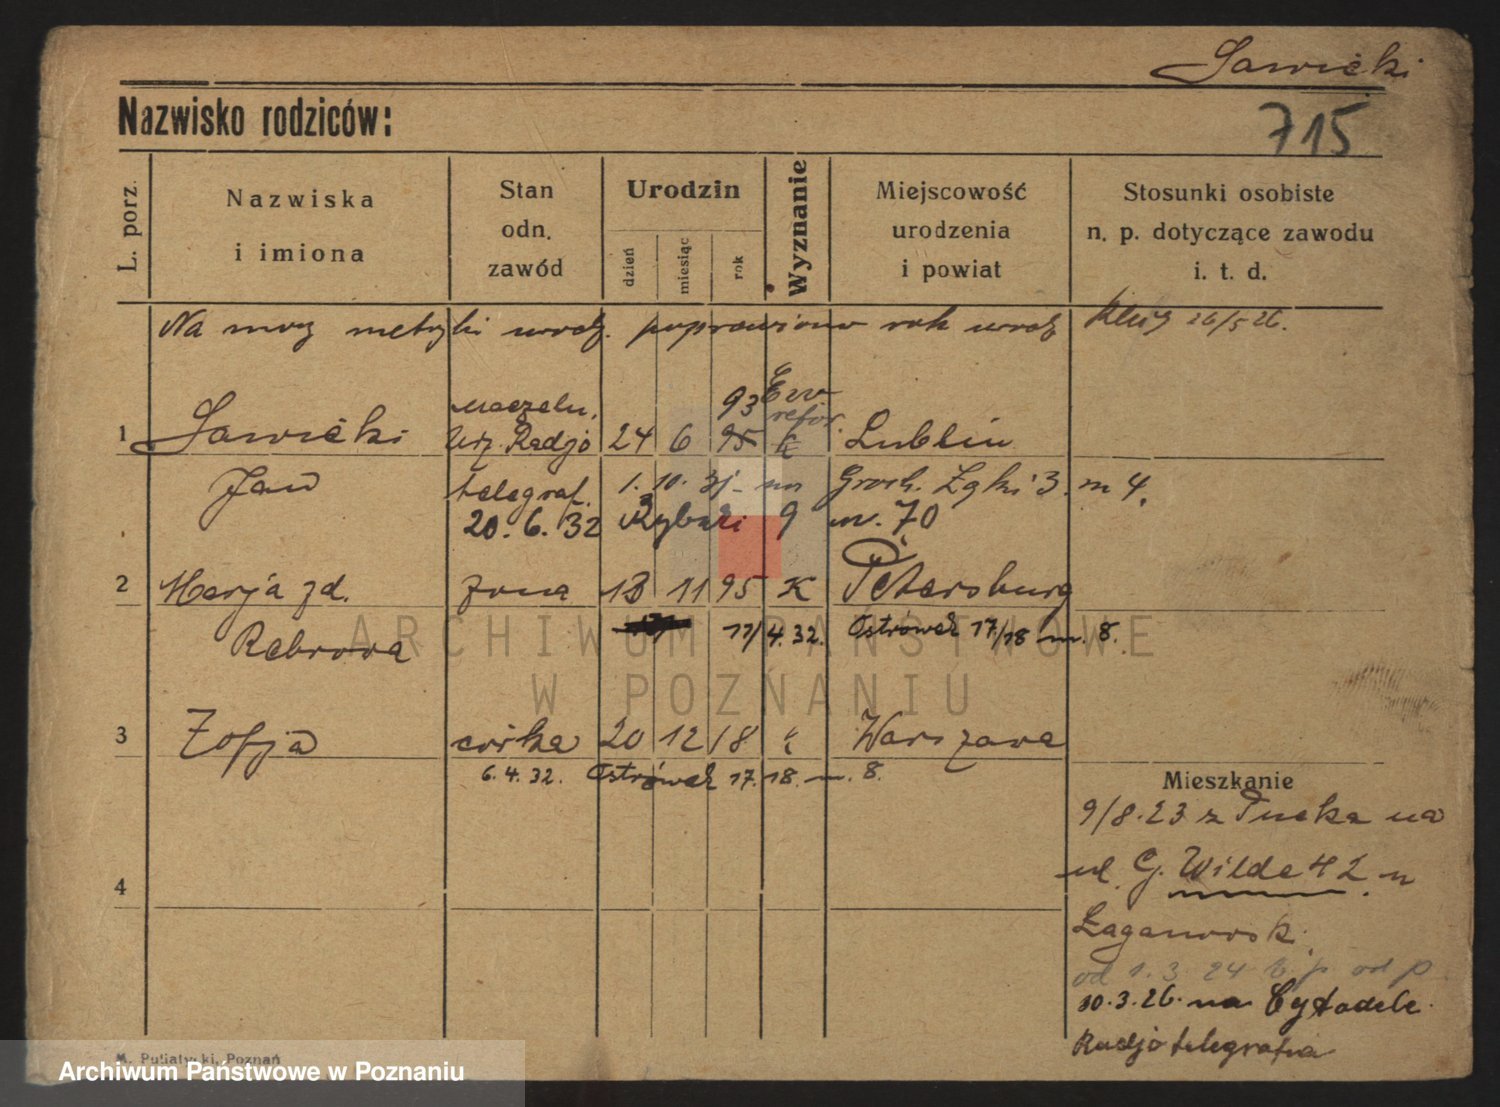 Sawicki
Nazwisko rodziców:
715
L. porz.
Nazwiska
i imiona
Stan
odn.
zawód
Urodzin
dzień
miesiąc
rok
Wyznanie
Miejscowość
urodzenia
i powiat
Stosunki osobiste
n. p. dotyczące zawodu
i. t. d.
Na mocy metryki urodz. poprawiono rok urodz 26/5 26.
naczeln. 93 Ew
refor.
1 Sawicki Urz. Radjo 24 6 95 k Lublin
Jan telegraf. 1. 10. 31 na Groch. Łąki 3. m 4.
20. 6. 32 Rybaki 9 m. 70
2 Marja zd. żona 13 11 95 K Petersburg
Rebrowa 17/4. 32. Ostrówek 17/18 m. 8.
3 Zofja córka 20 12 18 k Warszawa
6. 4. 32. Ostrówek 17. 18. m. 8.
4
Mieszkanie
9/8. 23 z Pucka na
ul. G. Wilda 42 u
Łaganowsk.
od 1. 3. 24
10. 3. 26. na Cytadele
Radjo telegrafia
M. Putiatycki, Poznań
ARCHIWUM PAŃSTWOWE
W POZNANIU
Archiwum Państwowe w Poznaniu